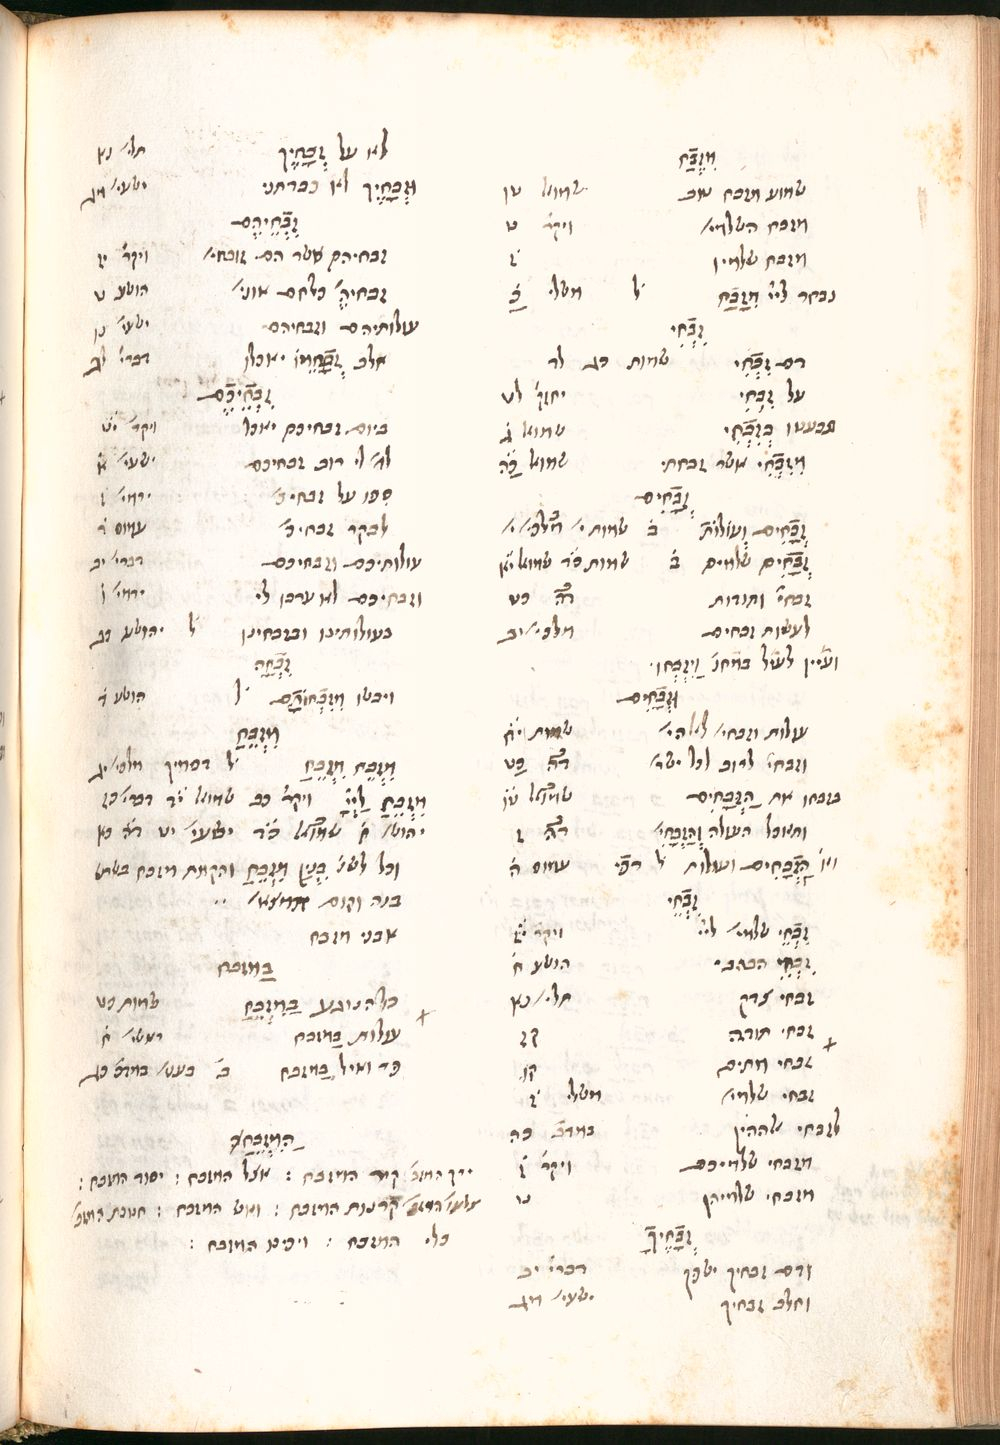 מִזֶּבַח
שמוע מזבח טוב שמואל טו
מזבח השלמי׳ ויקר׳ ט
מזבח שלמין ז
נבחר ליי׳ מִזָבַח ל׳ משלי כ
זִבְחִי
דם זִבְחִי שמות כג לד
על זִבְחִי יחזק׳ לט
תבעטו בְזִבְחִי שמואל ג
אשר זבחתי שמואל כה
זְבָחִים
זְבָחִים וְעוֹלוֹת ב׳ שמות י׳ מלכי׳ י׳
זְבָחִים שלמים ב׳ שמות כד שמואל יא
זבחי׳ ותודות כט
לעשות זבחים מלכי׳ יב
ועיין לעיל
זְבָחִים
עולות וזבחי׳ לאלהי׳ שמות יח
וזבחי׳ לרוב לכל ישר׳
את הַזְבָחִים שמואל טו
ותאכל העולה וְהַזְבָחִי׳ ז
הַזְבָחִים ועולות עמוס ה
זִבְחֵי
זִבְחֵי שלמי׳ ליי׳ ויקר׳
זִבְחֵי הבהבי׳ הושע ח
זבחי צדק תלי׳ נא
זבחי תודה קז
זבחי מתים קו
זבחי שלמי׳ משלי ז
לזבחי אלהיהן במדב׳ כה
מזבחי שלמיכם ויקר׳ ז
מזבחי שלמיהן
זְבָחֶיךָ
ודם זבחיך ישפך דברי׳ יב
וחלב זבחיך ישעי׳ מג
לא על זְבָחֶיךָ תלי׳ נא
וּזְבָחֶיךָ לא כבדתני ישעי׳ מג
זִבְחֵיהֶם
זבחיהם אשר הם זובחי׳ ויקר׳ יז
זבחיה׳ כלחם אוני׳ הושע ט
עולותיהם וזבחיהם ישעי׳ נו
חלב זְבָחֵימוֹ יאכלו דברי׳ לב
זִבְחֵיכֶם
ביום זבחיכם יאכל ויקר׳ יט
למ׳ לי רוב זבחיכם ישעי׳ א
ספו על זבחיכ׳ ירמי׳ ז
לבקר זבחיכ׳ עמוס ד
עולותיכם וזבחיכם דברי׳ יב
וזבחיכם לא ערבו לי ירמי׳ ו
בעולותינו ובזבחינו ל׳ יהושע כב
ויבשו מִזִבְחוֹתָם ל׳ הושע ד
מִזְבֵחַ
מִזְבֵחַ מִזְבֵחַ ל׳ דסמיך מלכי׳ יג
מִזְבֵחַ לַיְיָ
והקמת מזבח
בנה וקום
אבני מזבח
במזבח
כל הנוגע בַמִזְבֵחַ שמות כט
עולות במזבח
פר ואיל במזבח ב׳ במדב׳ כג
הַמִזְבֵחַ
ירך המזב׳ קיר המזבח : אצל המזבח : יסוד המזבח :
קרנות המזבח : ואש המזבח : חנוכת המזב׳
כלי המזבח : המזבח :